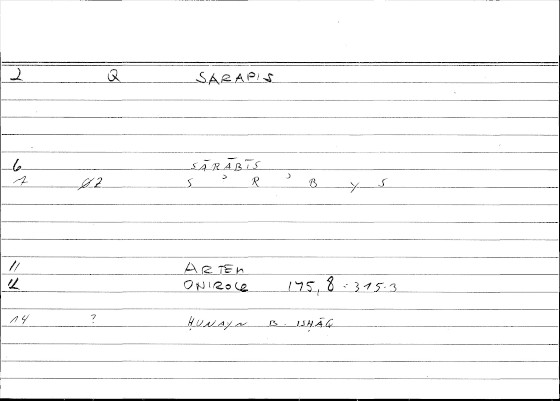 2 Q SARAPIS
6 SĀRĀBĪS
7 02 S ʾ R ʾ B y S
11 ARTEM
12 ONIROCR 175,8 = 315.3
14 ? ḤUNAYN B. ISḤĀQ